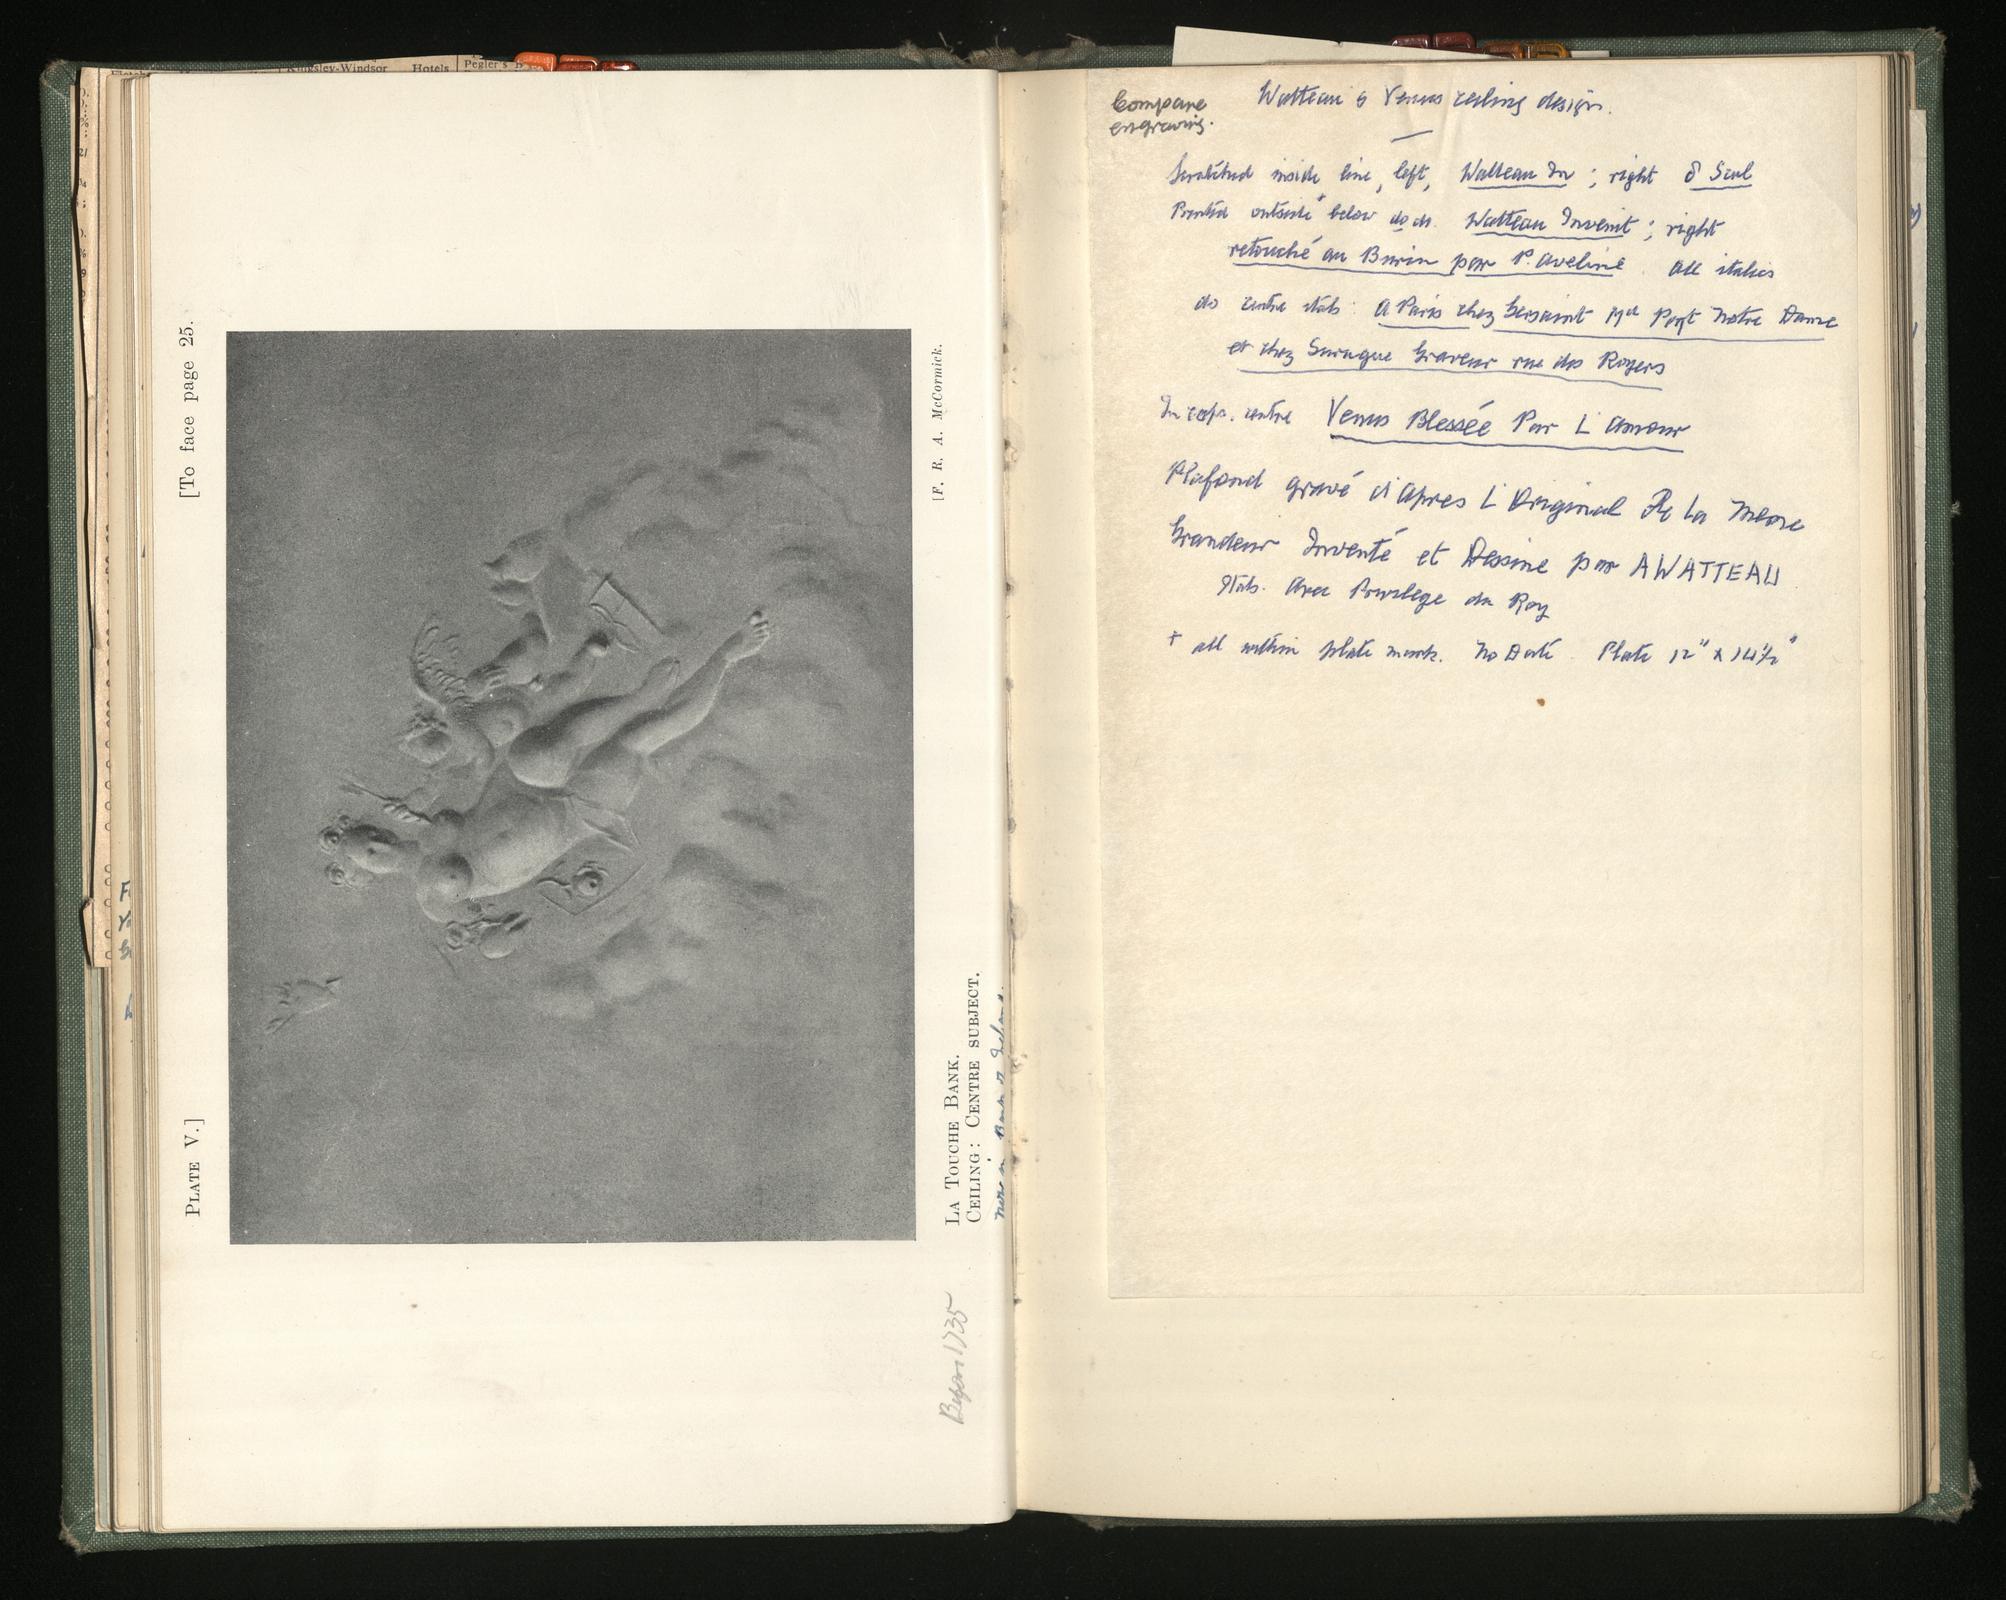 Kingsley-Windsor Hotels
Pegler's
[To face page 25.
PLATE V.]
[F. R. A. McCormick.
LA TOUCHE BANK.
CEILING: CENTRE SUBJECT.
now in Bank of Ireland.
Began 1735
Compare
engraving.
Watteau's Venus ceiling design.
Scratched inside line, left, Watteau In; right Scul
Printed outside+ below do do. Watteau Invenit; right
retouché au Burin par P. Aveline. All italics
do centre itals. A Paris chez Gersaint Md Pont Notre Dame
et chez Surugue Graveur rue des Noyers
In caps. centre Venus Blessée Par L'Amour
Plafond gravé d'Apres L'Original De La Meme
Grandeur Inventé et Dessine par A WATTEAU
Itals. Avec Privilege du Roy
+ all within plate mark. No Date. Plate 12" x 14½"